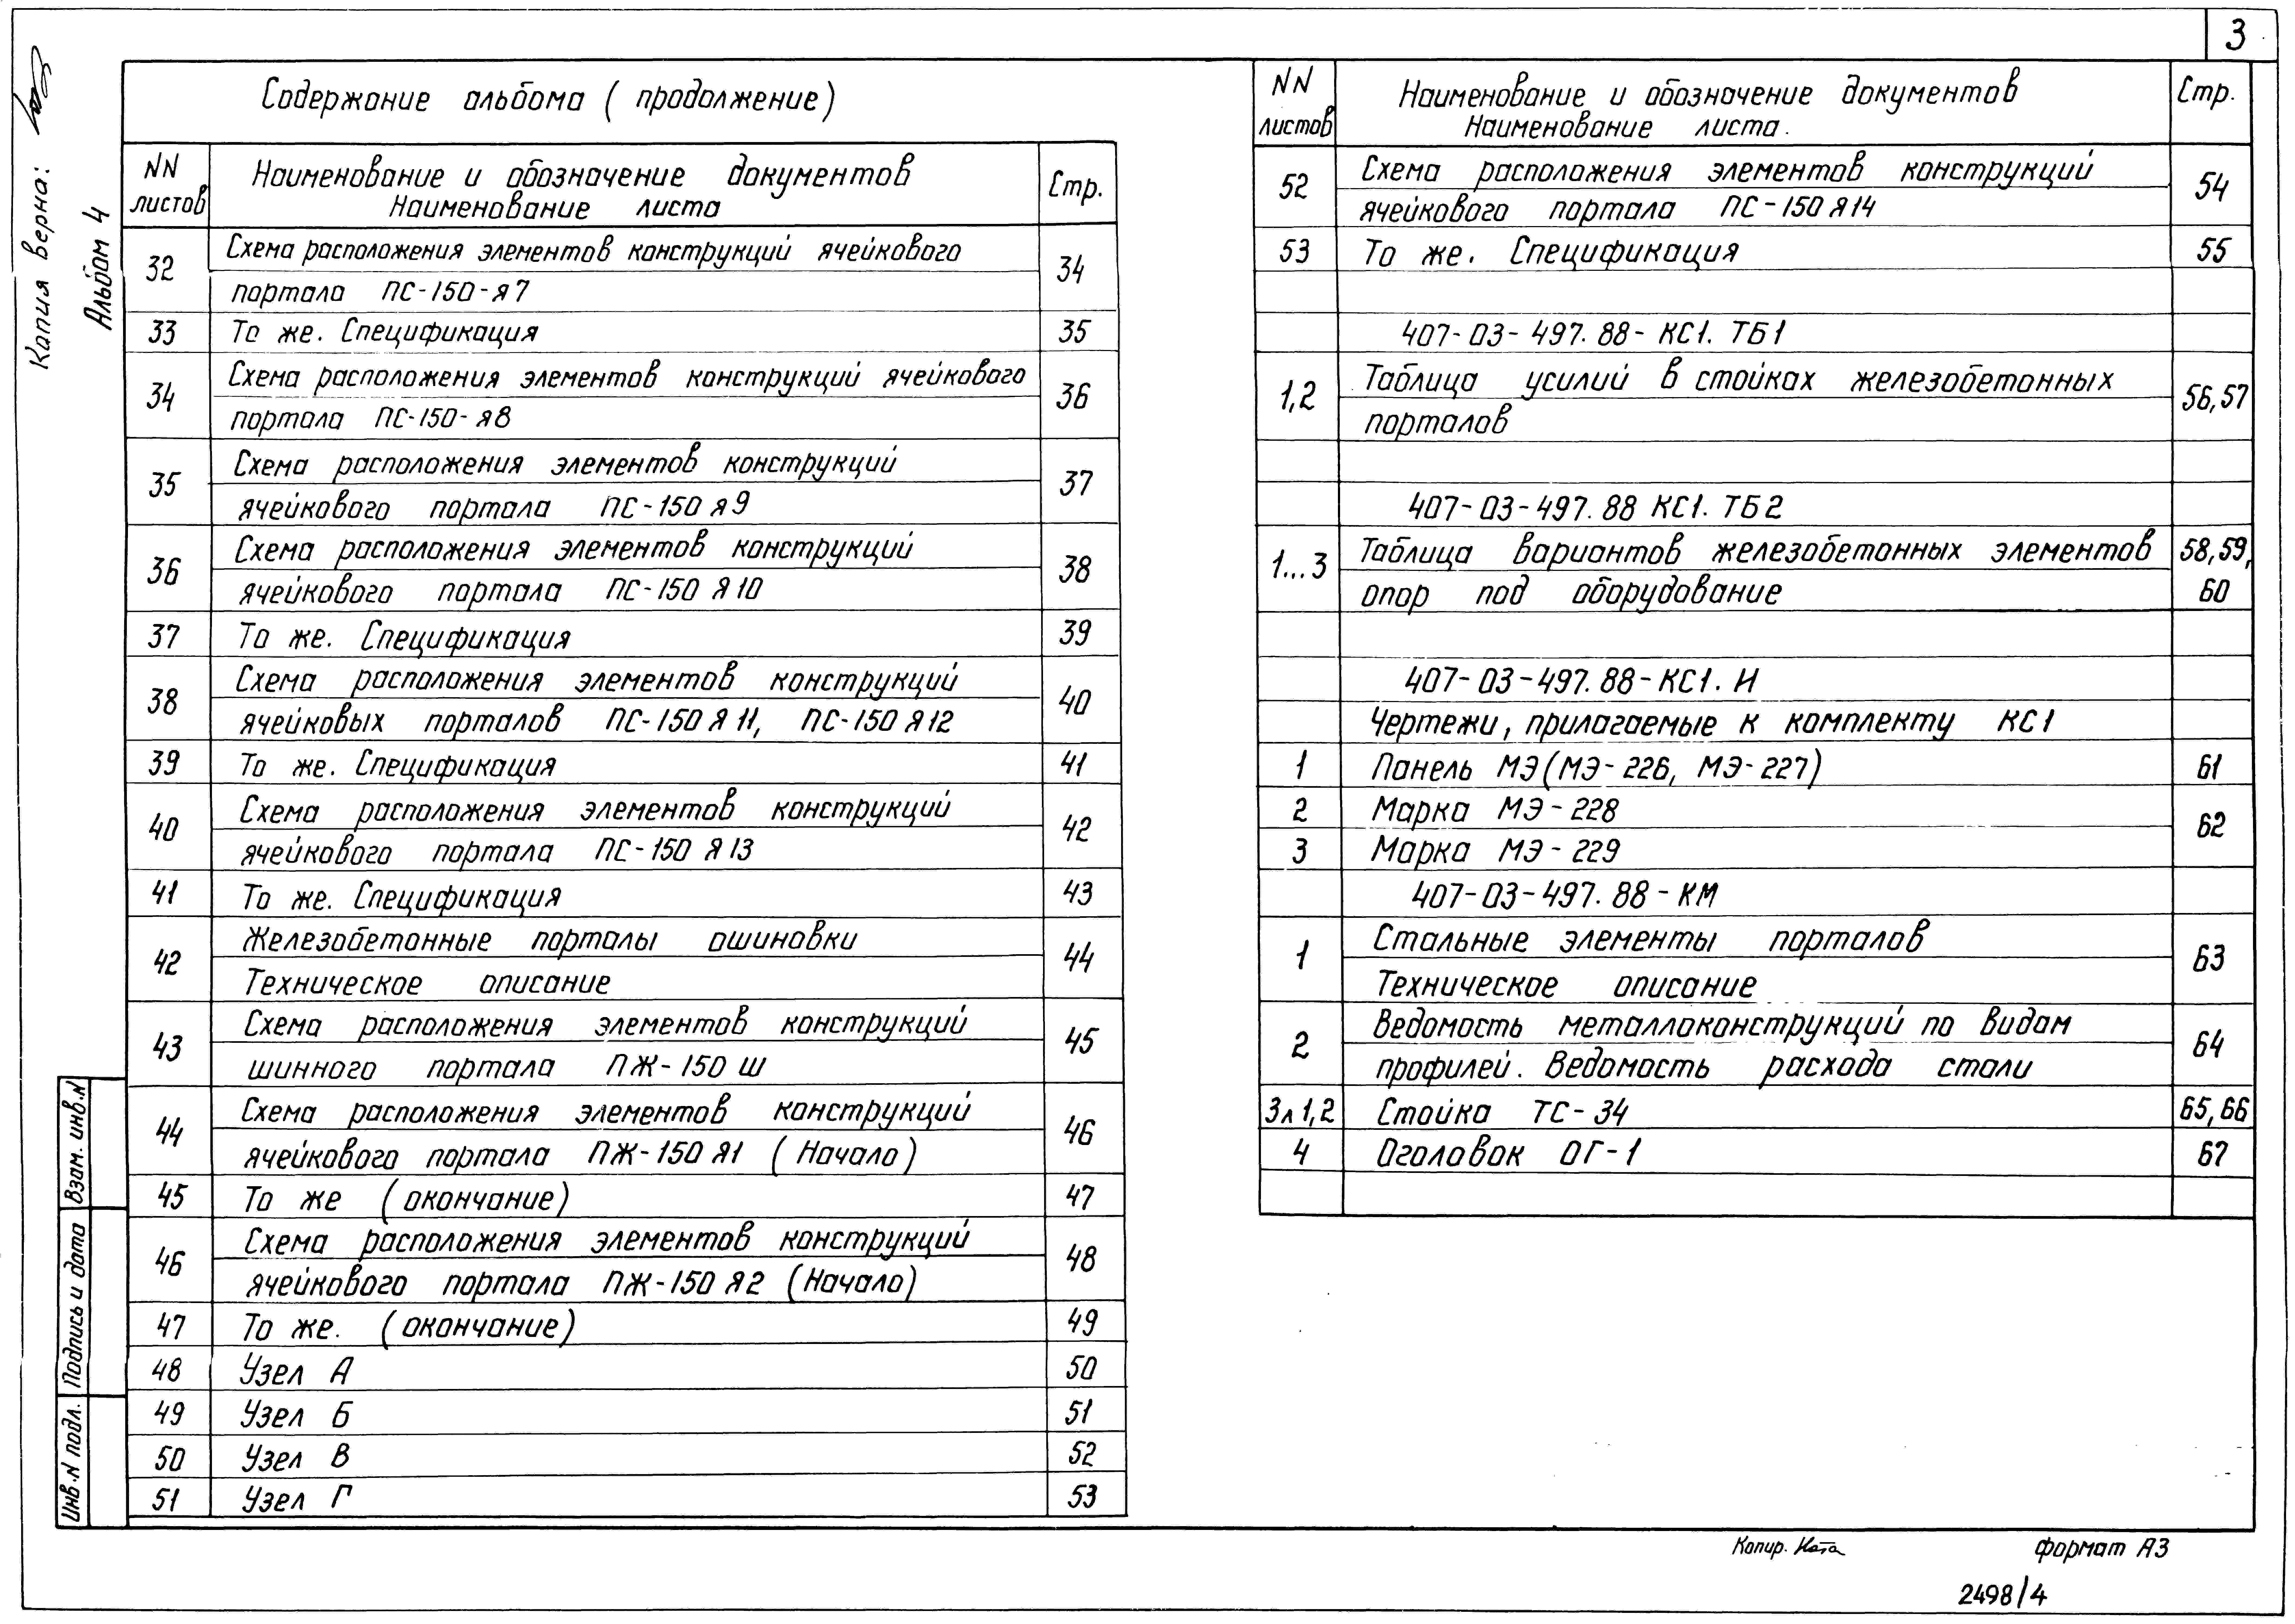 3
Копия верна:
Альбом 4
Содержание альбома (продолжение)
NN листов
Наименование и обозначение документов
Наименование листа
Стр.
32
Схема расположения элементов конструкций ячейкового
портала ПС-150-Я7
34
33 То же. Спецификация 35
34
Схема расположения элементов конструкций ячейкового
портала ПС-150-Я8
36
35
Схема расположения элементов конструкций
ячейкового портала ПС-150 Я9
37
36
Схема расположения элементов конструкций
ячейкового портала ПС-150 Я10
38
37 То же. Спецификация 39
38
Схема расположения элементов конструкций
ячейковых порталов ПС-150 Я11, ПС-150 Я12
40
39 То же. Спецификация 41
40
Схема расположения элементов конструкций
ячейкового портала ПС-150 Я13
42
41 То же. Спецификация 43
42
Железобетонные порталы ошиновки
Техническое описание
44
43
Схема расположения элементов конструкций
шинного портала ПЖ-150 Ш
45
44
Схема расположения элементов конструкций
ячейкового портала ПЖ-150 Я1 (Начало)
46
45 То же (окончание) 47
46
Схема расположения элементов конструкций
ячейкового портала ПЖ-150 Я2 (Начало)
48
47 То же. (окончание) 49
48 Узел А 50
49 Узел Б 51
50 Узел В 52
51 Узел Г 53
NN листов
Наименование и обозначение документов
Наименование листа.
Стр.
52
Схема расположения элементов конструкций
ячейкового портала ПС-150 Я14
54
53 То же. Спецификация 55
407-03-497.88-КС1. ТБ1
1,2
Таблица усилий в стойках железобетонных
порталов
56,57
407-03-497.88 КС1. ТБ2
1...3
Таблица вариантов железобетонных элементов
опор под оборудование
58,59,
60
407-03-497.88-КС1. И
Чертежи, прилагаемые к комплекту КС1
1 Панель МЭ(МЭ-226, МЭ-227) 61
2 Марка МЭ-228
62
3 Марка МЭ-229
407-03-497.88-КМ
1
Стальные элементы порталов
Техническое описание
63
2
Ведомость металлоконструкций по видам
профилей. Ведомость расхода стали
64
3л1,2 Стойка ТС-34 65,66
4 Оголовок ОГ-1 67
Взам. инв.N
Подпись и дата
Инв.N подл.
Копир. Ната
формат А3
2498/4